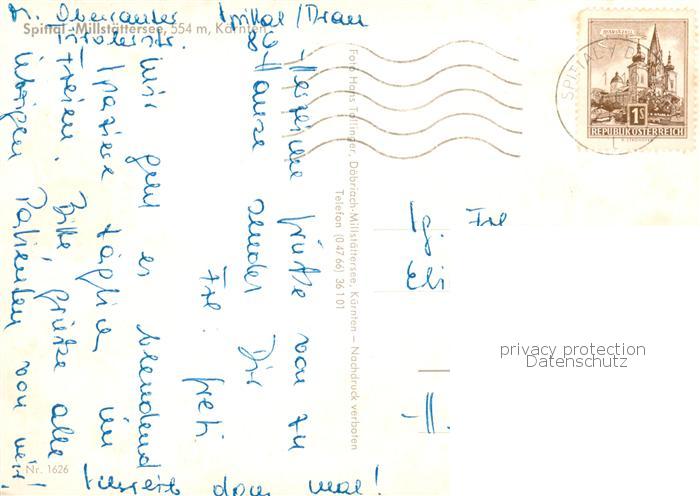 Oberauter Spittal/Drau
Tirolerstr. 86
Spittal-Millstättersee, 554 m, Kärnten
Herzliche Grüße von zu
Hause sendet Dir
Frl. Greti
mir geht es blendend
spaziere täglich im
Freien. Bitte grüße alle
übrigen Patienten von mir!
schreib doch mal!
Nr. 1626
Foto Hans Tollinger, Döbriach-Millstättersee, Kärnten – Nachdruck verboten
Telefon (0 47 66) 36 1 01
MARIAZELL
1S
REPUBLIK ÖSTERREICH
SPITTAL/D
Frl.
Eli
privacy protection
Datenschutz